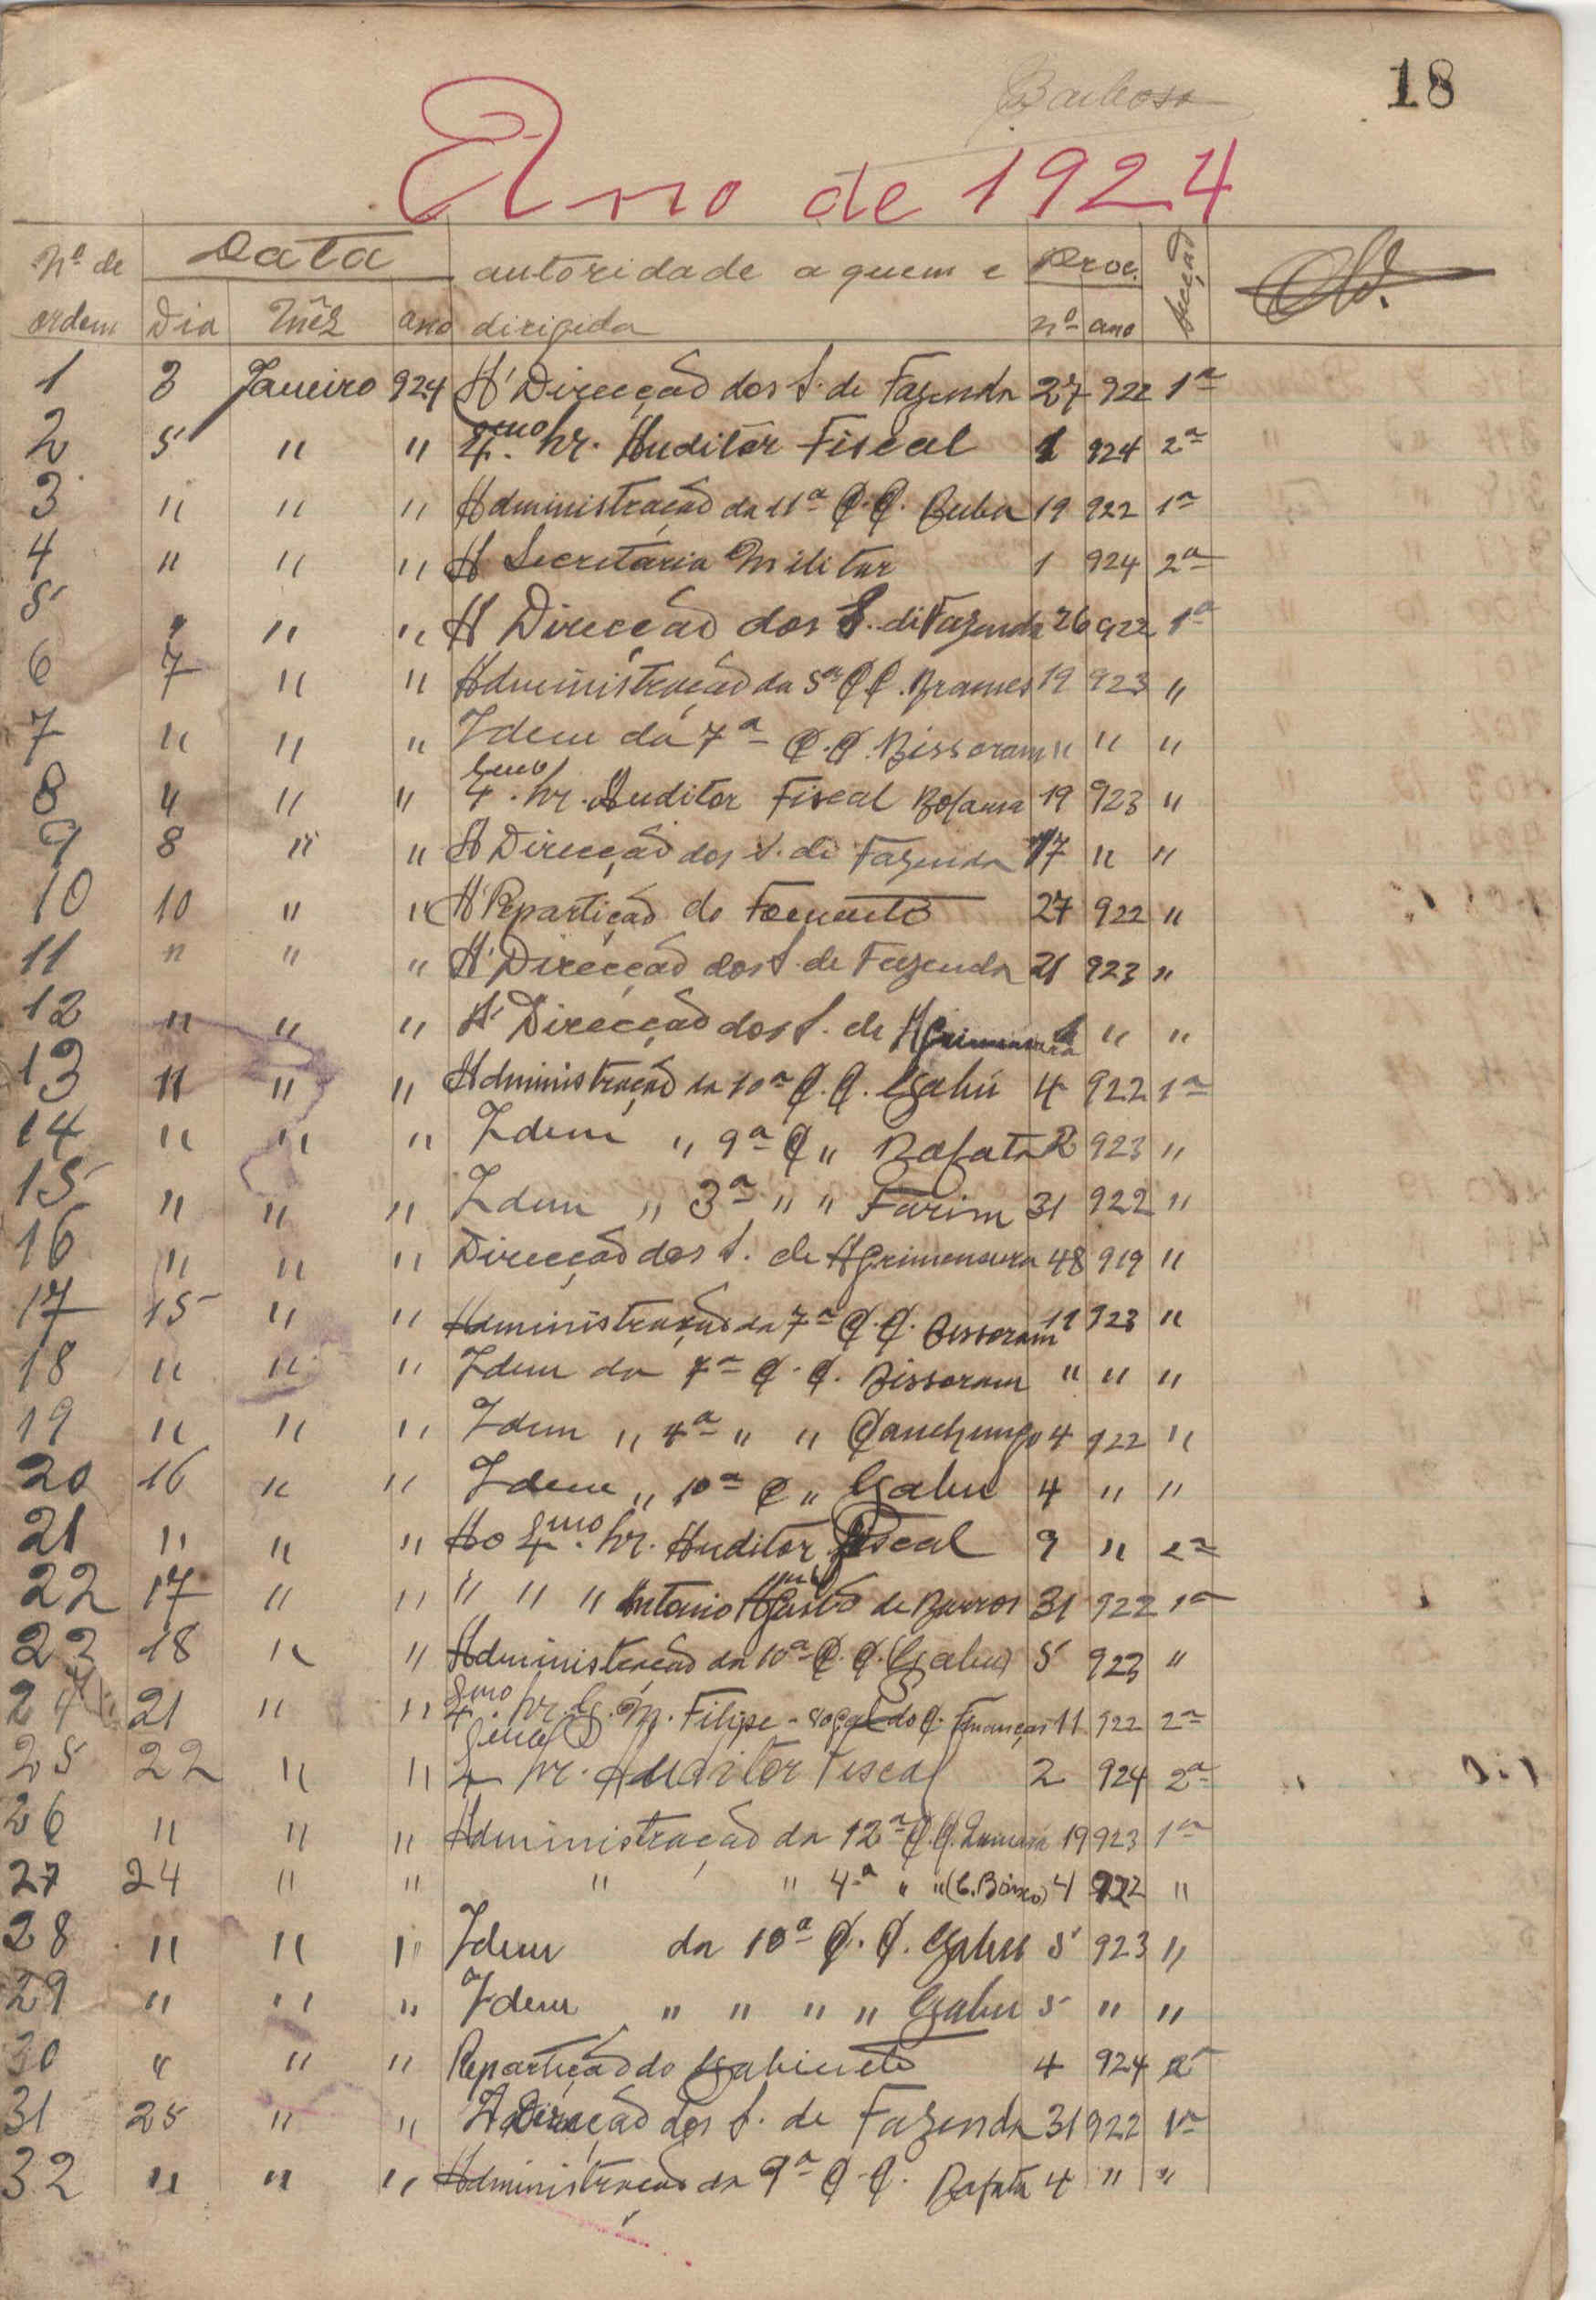 Barbosa
18
Ano de 1924
Nº de ordem Data Dia Mês ano autoridade a quem e dirigida Proc. nº ano Secção
1 3 Janeiro 924 A' Direcção dos S. de Fazenda 27 922 1ª
2 5 " " Exmo Sr. Auditor Fiscal 1 924 2ª
3 " " " Administração da 11ª C.C. Buba 19 922 1ª
4 " " " A Secretária Militar 1 924 2ª
5 " " " A Direcção dos S. de Fazenda 26 922 1ª
6 7 " " Administração da 5ª C.C. Brames 19 923 "
7 " " " Idem da 7ª C.C. Bissoram " " "
8 4 " " Exmo Sr. Auditor Fiscal Bolama 19 923 "
9 8 " " A Direcção dos S. de Fazenda 17 " "
10 10 " " A' Repartição do Fomento 27 922 "
11 " " " A' Direcção dos S. de Fazenda 21 923 "
12 " " " A' Direcção dos S. de Agrimensura 1 " "
13 11 " " Administração da 10ª C.C. Gabú 4 922 1ª
14 " " " Idem " 9ª C " Bafata 2 923 "
15 " " " Idem " 3ª " " Farim 31 922 "
16 " " " Direcção dos S. de Agrimensura 48 919 "
17 15 " " Administração da 7ª C.C. Bissoram 11 923 "
18 " " " Idem da 7ª C.C. Bissoram " " "
19 " " " Idem " 4ª " " Canchungo 4 922 "
20 16 " " Idem " 10ª C " Gabu 4 " "
21 " " " Ao Exmo Sr. Auditor Fiscal 9 " 2ª
22 17 " " " " " Antonio de Barros 31 922 1ª
23 18 " " Administração da 10ª C.C. (Gabu) 5 923 "
24 21 " " Exmo Sr. G. M. Filipe - vogal do C. Finanças 11 922 2ª
25 22 " " Exmo Sr. Auditor Fiscal 2 924 2ª
26 " " " Administração da 12ª C.C. 19 923 1ª
27 24 " " " " 4ª " " 4 922 "
28 " " " Idem da 10ª C.C. Gabu 5 923 "
29 " " " Idem " " " " Gabu 5 " "
30 " " " Repartição do Gabinete 4 924 2ª
31 25 " " A Direcção dos S. de Fazenda 31 922 1ª
32 " " " Administração da 9ª C.C. Bafata 4 " "